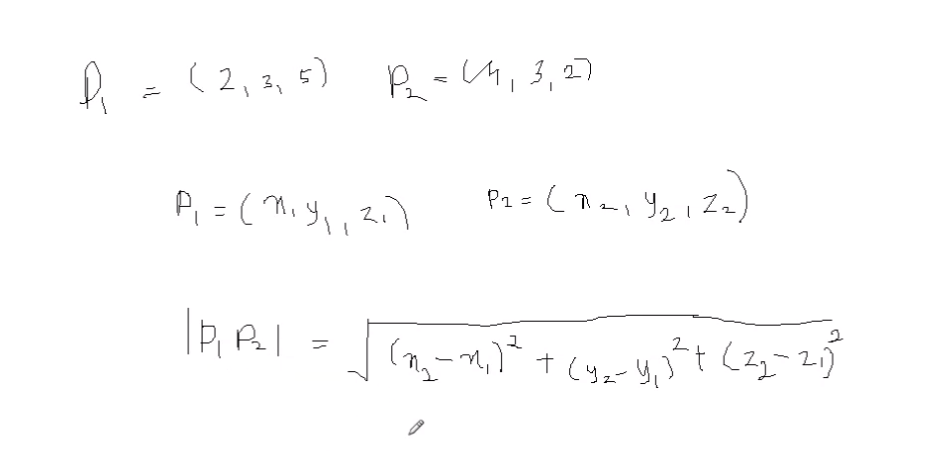 P₁ = (2, 3, 5) P₂ = (4, 3, 2)
P₁ = (x₁, y₁, z₁) P₂ = (x₂, y₂, z₂)
|P₁ P₂| = √((x₂ - x₁)² + (y₂ - y₁)² + (z₂ - z₁)²)